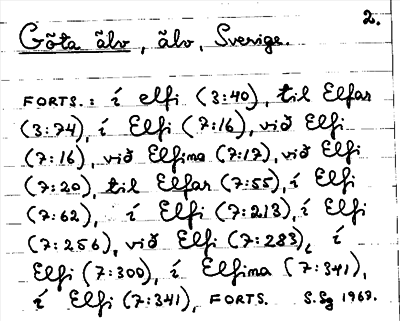 2.
Göta älv, älv, Sverige.
FORTS.: í elfi (3:40), til Elfar
(3:74), í Elfi (7:16), við Elfi
(7:16), við Elfina (7:17), við Elfi
(7:20), til Elfar (7:55), í Elfi
(7:62), í Elfi (7:213), í Elfi
(7:256), við Elfi (7:283), í
Elfi (7:300), í Elfina (7:341),
í Elfi (7:341), FORTS. S.Sg 1969.